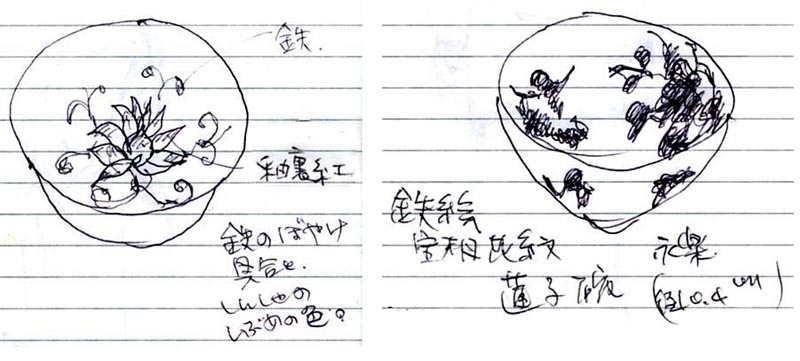 鉄.
釉裏紅
鉄のぼやけ
具合と.
しんしゃの
しぶめの色。
鉄絵
宝相花紋
蓮子碗
永楽
(径10.4cm)